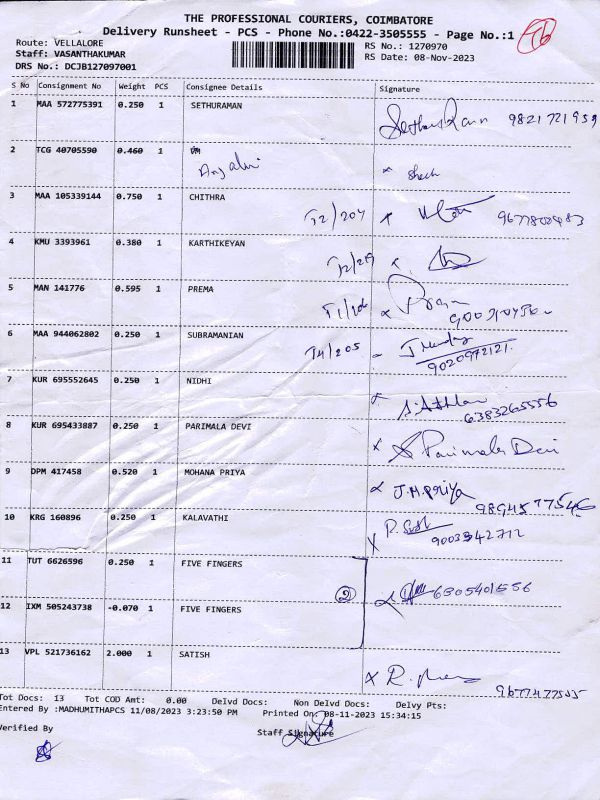 THE PROFESSIONAL COURIERS, COIMBATORE
Delivery Runsheet - PCS - Phone No.:0422-3505555 - Page No.:1
Route: VELLALORE
Staff: VASANTHAKUMAR
DRS No.: DCJB127097001
RS No.: 1270970
RS Date: 08-Nov-2023
S No Consignment No Weight PCS Consignee Details Signature
1 MAA 572775391 0.250 1 SETHURAMAN
2 TCG 40705590 0.460 1
3 MAA 105339144 0.750 1 CHITHRA T2/204
4 KMU 3393961 0.380 1 KARTHIKEYAN T2/219
5 MAN 141776 0.595 1 PREMA
6 MAA 944062802 0.250 1 SUBRAMANIAN T4/205
9020972121.
7 KUR 695552645 0.250 1 NIDHI
6383265556
8 KUR 695433887 0.250 1 PARIMALA DEVI Parimala Devi
9 DPM 417458 0.520 1 MOHANA PRIYA J.M.Priya
10 KRG 160896 0.250 1 KALAVATHI
9003342712
11 TUT 6626596 0.250 1 FIVE FINGERS
② 6305401556
12 IXM 505243738 -0.070 1 FIVE FINGERS
13 VPL 521736162 2.000 1 SATISH
Tot Docs: 13 Tot COD Amt: 0.00 Delvd Docs: Non Delvd Docs: Delvy Pts:
Entered By :MADHUMITHAPCS 11/08/2023 3:23:50 PM Printed On: 08-11-2023 15:34:15
Verified By Staff Signature